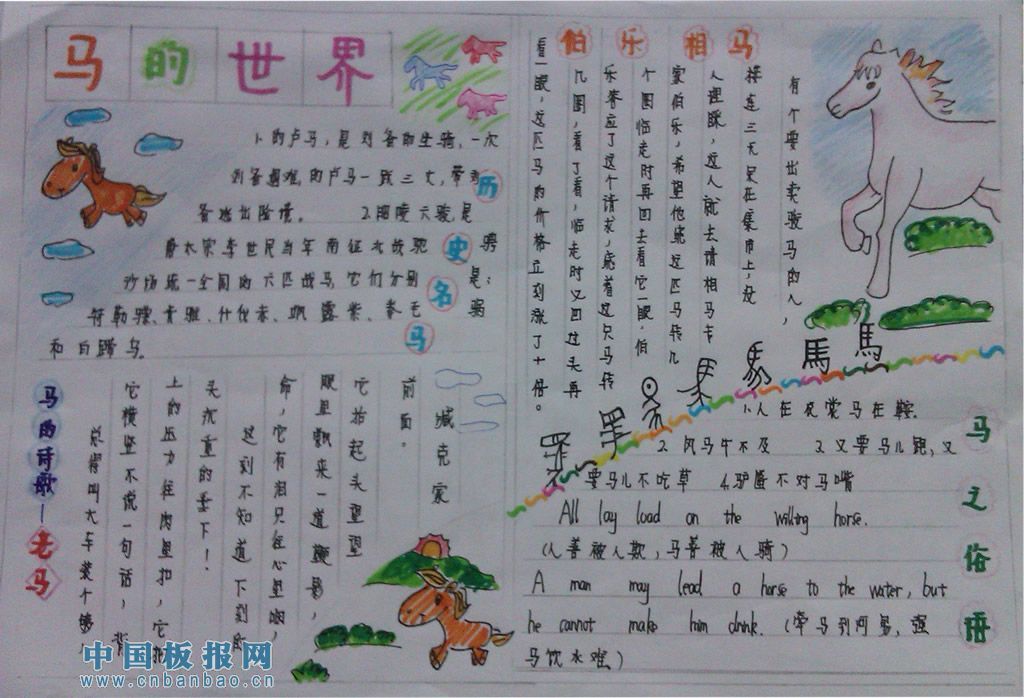 马的世界
历史名马
1.的卢马,是刘备的坐骑,一次
刘备遇难,的卢马一跃三丈,带刘
备逃出险境。 2.昭陵六骏是
唐太宗李世民当年南征北战驰骋
沙场统一全国的六匹战马,它们分别是:
特勒骠、青骓、什伐赤、飒露紫、拳毛
和白蹄乌。
马的诗歌—老马
臧克家
总得叫大车装个够,
它横竖不说一句话,背
上的压力往肉里扣,它把
头沉重的垂下!
这刻不知道下刻的
命,它有泪只往心里咽,
眼里飘来一道鞭影,
它抬起头望望
前面。
伯乐相马
有个要出卖骏马的人,
接连三天呆在集市上,没
人理睬,这人就去请相马专
家伯乐,希望他绕这匹马转几
个圈,临走时再回去看它一眼。伯
乐答应了这个请求,绕着这只马转
几圈,看了看,临走时又回过头再
看一眼,这匹马的价格立到涨了十倍。
馬 馬
马之俗语
1.人在衣裳马在鞍.
2.风马牛不及 3.又要马儿跑,又
要马儿不吃草 4.驴唇不对马嘴
All lay load on the willing horse.
(人善被人欺,马善被人骑)
A man may lead a horse to the water, but
he cannot make him drink. (牵马到河易,强
马饮水难)
中国板报网
www.cnbanbao.cn